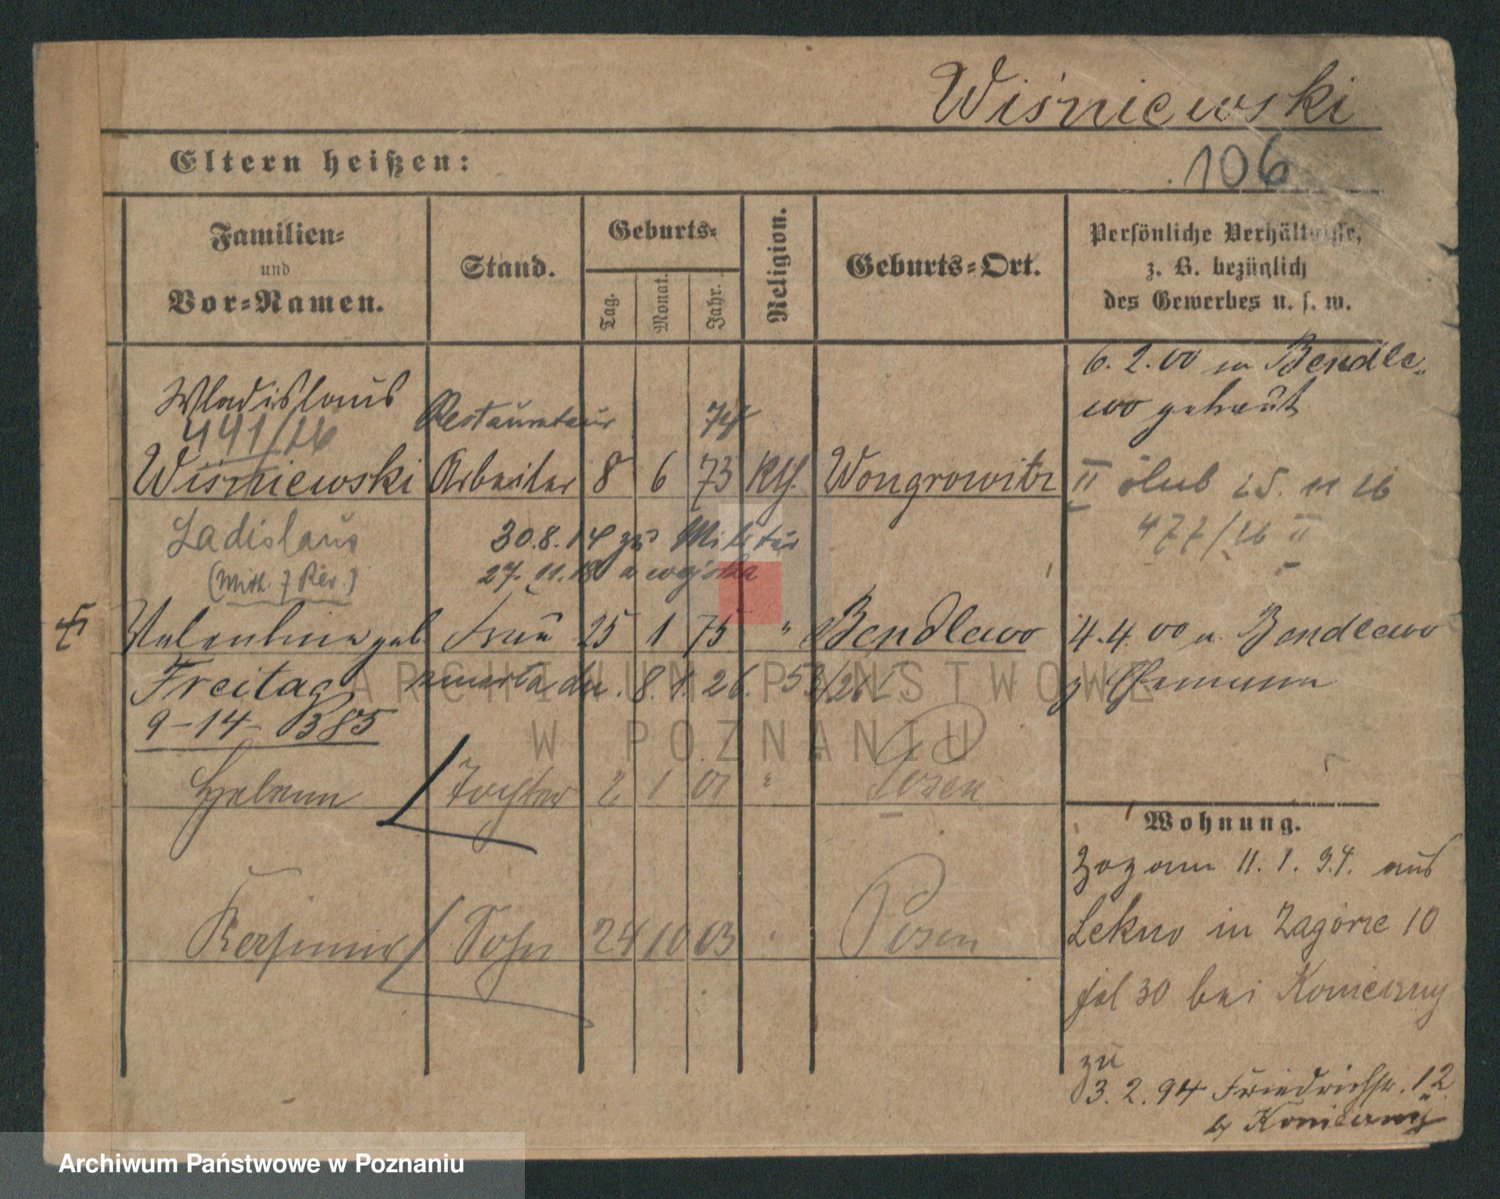 Wiśniewski
Eltern heißen:
106
Familien=
und
Vor=Namen.
Stand.
Geburts=
Tag.
Monat.
Jahr.
Religion.
Geburts=Ort.
Persönliche Verhältnisse,
z. B. bezüglich
des Gewerbes u. s. w.
Wladislaus
441/26
Restaurateur
74
6. 2. 00 in Bendle=
wo getraut
Wiśniewski Arbeiter 8 6 73 kth. Wongrowitz
II ślub 25. 11 26
477/26 II
Ladislaus
30.8.14 zu Militär
27. 11. 18 a wojska
Valentine geb. Frau 25 1 75 " Bendlewo
4. 4. 00 a. Bendlewo
z Ehemann
Freitag zmarła dn. 8. 1. 26. 53/26
9-14- B85
Helena Tochter 2 1 01 " Posen
Wohnung.
Zozam 11. 1. 94. aus
Lekno in Zagorze 10
fol 30 bei Konieczny
Sohn 24 10 03 Posen
zu
3. 2. 94 Friedrichstr. 12
b/ Konieczny
ARCHIWUM PAŃSTWOWE
W POZNANIU
Archiwum Państwowe w Poznaniu